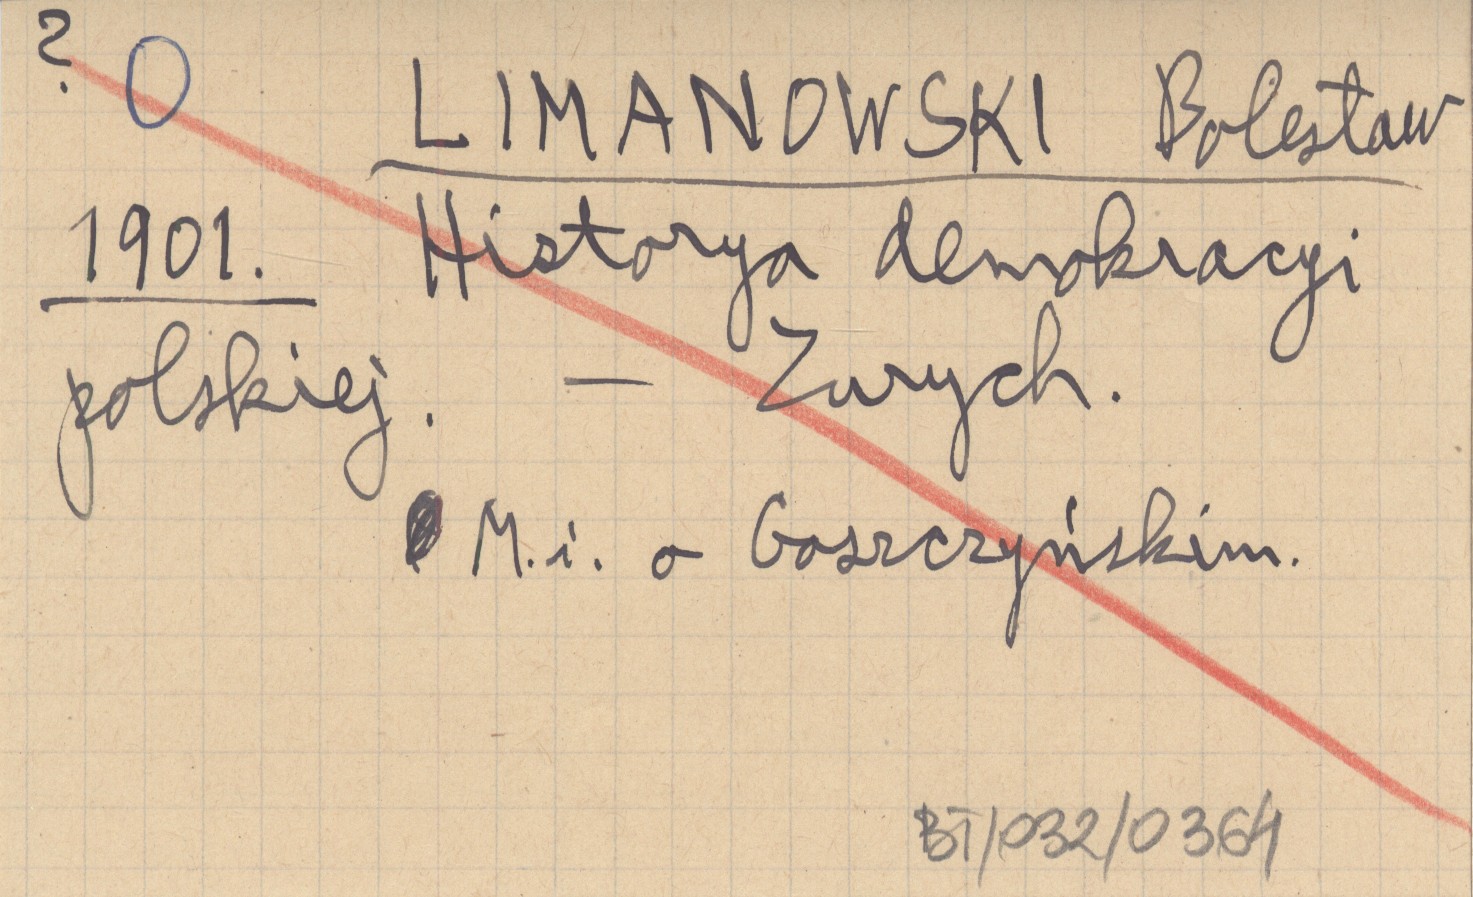 ? O
LIMANOWSKI Bolesław
1901. Historya demokracyi
polskiej. — Zurych.
M.i. o Goszczyńskim.
BT/032/0364